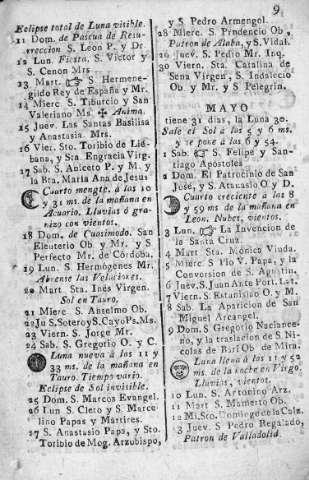 9
Eclipse total de Luna visible.
11 Dom. de Pascua de Resu-
rreccion S. Leon P. y Dr
12 Lun. Fiesta, S. Victor y
S. Cenon Mrs
13 Mart. S. Hermene-
gildo Rey de España y Mr.
14 Mierc S. Tiburcio y San
Valeriano Ms ✠ Anima.
15 Juev. Las Santas Basilisa
y Anastasia Mrs.
16 Vier. Sto. Toribio de Lié-
bana, y Sta. Engracia Virg.
17 Sab. S. Aniceto P. y M. y
la Bta. Maria Ana de Jesus
Cuarto mengte. á las 10
y 31 ms. de la mañana en
Acuario. Lluvias ó gra-
nizo con vientos.
18 Dom. de Cuasimodo. San
Eleuterio Ob y Mr. y S
Perfecto Mr. de Córdoba.
19 Lun. S. Hermógenes Mr.
Abrense las Velaciones.
20 Mart Sta. Inés Virgen.
Sol en Tauro,
21 Mierc S. Anselmo Ob.
22 Ju S. Sotero y S. Cayo Ps. Ms.
23 Viern S. Jorge Mr.
24 Sab. S. Gregorio O. y C.
Luna nueva á los 11 y
33 ms. de la mañana en
Tauro. Tiempo vario.
Eclipse de Sol invisible.
25 Dom S. Marcos Evangel.
26 Lun S. Cleto y S. Marce-
lino Papas y Mártires.
27 S. Anastasio Papa, y Sto.
Toribio de Mog. Arzubispo,
y S Pedro Armengol.
28 Mierc. S. Prudencio Ob,
Patron de Alaba, y S. Vidal.
26 Juev. S. Pedro Mr. Inq.
30 Viern. Sta. Catalina de
Sena Virgen, S. Indalecio
Ob y Mr. y S Pelegrin.
MAYO
tiene 31 dias, la Luna 30.
Sale el Sol á los 5 y 6 ms.
y se pone á las 6 y 54.
1 Sab. S Felipe y San-
tiago Apóstoles
2 Dom. El Patrocinio de San
José, y S. Atanasio O y D.
Cuarto creciente á las 8
y 59 ms de la mañana en
Leon. Nubes, vientos.
3 Lun. La Invencion de
la Santa Cruz
4 Mart Sta. Mónica Viuda.
5 Mierc S Pio V. Papa, y la
Conversion de S. Agustin.
6 Juev. S. Juan Ante Port. Lat.
7 Viern. S. Estanislao O. y M.
8 Sab. La Aparicion de San
Miguel Arcangel.
9 Dom. S Gregorio Nacianse-
no, y la traslacion de S Ni-
colas de Bari Ob. de Mira.
Luna llena á las 11 y 52
ms. de la noche en Virgo.
Lluvias, vientos.
10 Lun S. Antonino Arz.
11 Mart S. Mamerto Ob
12 Mi. Sto. Domingo de la Calz.
3 Juev S. Pedro Regalado,
Patron de Valladolid.